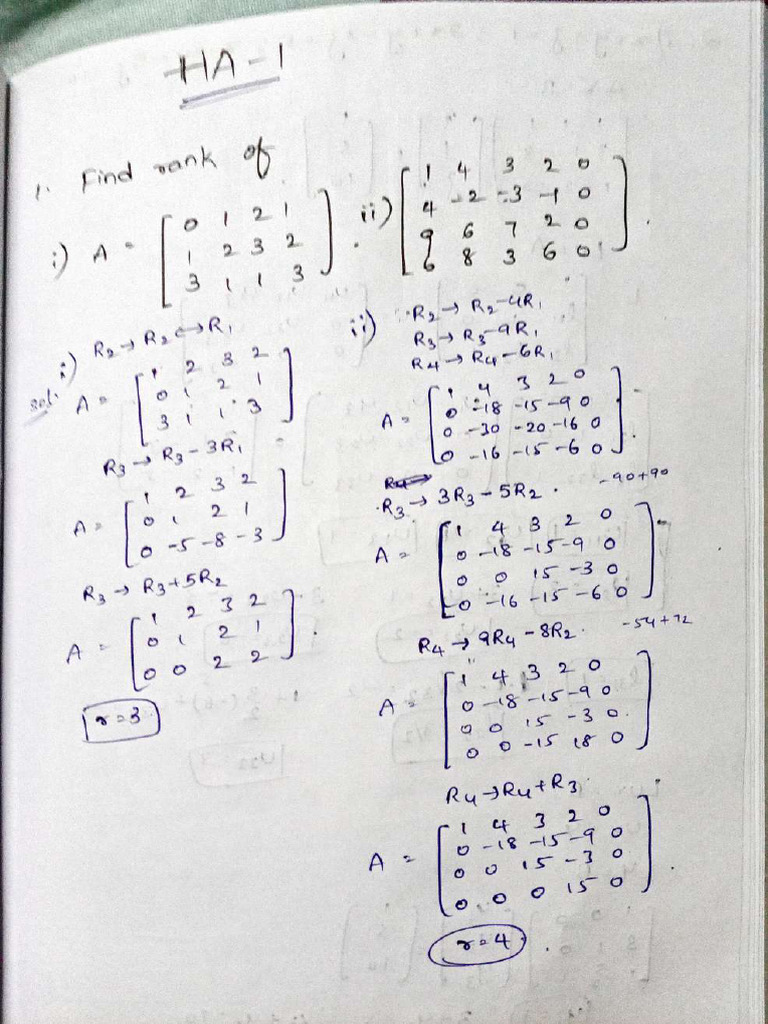 HA-1
1. Find rank of
i) A = [ 0 1 2 1
1 2 3 2
3 1 1 3 ].
ii) [ 1 4 3 2 0
4 -2 -3 -1 0
9 6 7 2 0
6 8 3 6 0 ].
i) R2 → R2 ↔ R1
sol: A = [ 1 2 3 2
0 1 2 1
3 1 1 3 ]
R3 → R3 - 3R1
A = [ 1 2 3 2
0 1 2 1
0 -5 -8 -3 ]
R3 → R3+5R2
A = [ 1 2 3 2
0 1 2 1
0 0 2 2 ].
r=3
ii) R2 → R2-4R1
R3 → R3-9R1
R4 → R4-6R1
A = [ 1 4 3 2 0
0 -18 -15 -9 0
0 -30 -20 -16 0
0 -16 -15 -6 0 ].
R3 → 3R3-5R2. -90+90
A = [ 1 4 3 2 0
0 -18 -15 -9 0
0 0 15 -3 0
0 -16 -15 -6 0 ]
R4 → 9R4-8R2. -54+72
A = [ 1 4 3 2 0
0 -18 -15 -9 0
0 0 15 -3 0
0 0 -15 18 0 ]
R4 → R4+R3
A = [ 1 4 3 2 0
0 -18 -15 -9 0
0 0 15 -3 0
0 0 0 15 0 ].
r=4.